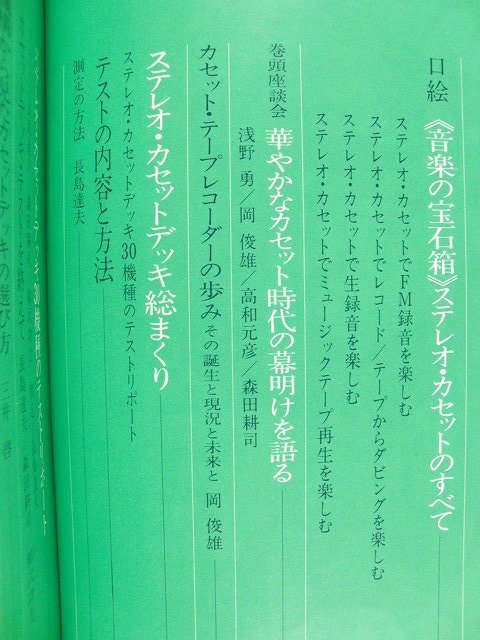 口絵 《音楽の宝石箱》ステレオ・カセットのすべて
ステレオ・カセットでFM録音を楽しむ
ステレオ・カセットでレコード/テープからダビングを楽しむ
ステレオ・カセットで生録音を楽しむ
ステレオ・カセットでミュージックテープ再生を楽しむ
巻頭座談会 華やかなカセット時代の幕明けを語る
浅野 勇/岡 俊雄/高和元彦/森田耕司
カセット・テープレコーダーの歩み その誕生と現況と未来と 岡 俊雄
ステレオ・カセットデッキ総まくり
ステレオ・カセットデッキ30機種のテストリポート
テストの内容と方法
測定の方法 長島達夫